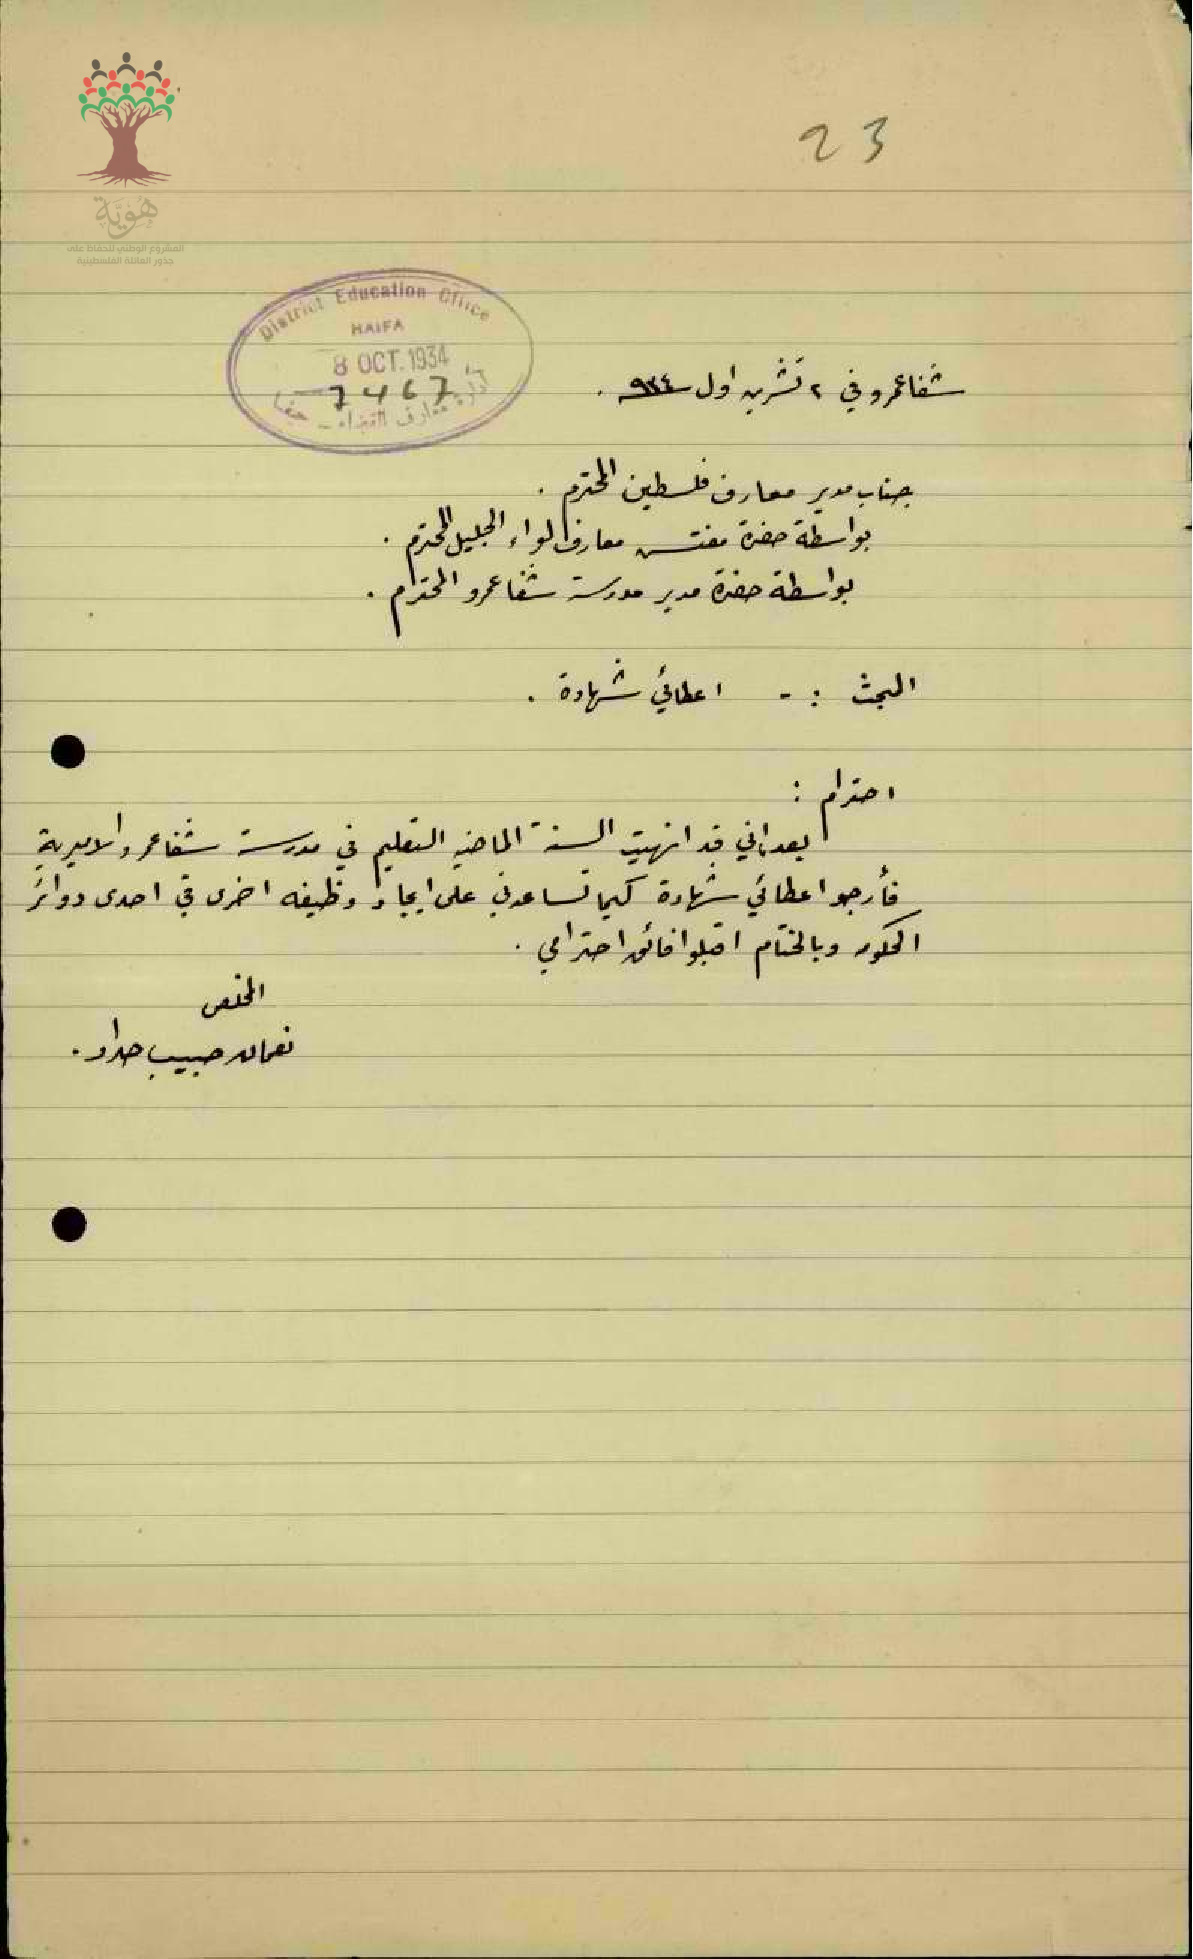 23
هُوِيَّة
المشروع الوطني للحفاظ على
جذور العائلة الفلسطينية
District Education Office
HAIFA
8 OCT. 1934
7467
ادارة معارف القضاء - حيفا
شفاعمرو في ٢ تشرين اول ٩٣٤ .
جناب مدير معارف فلسطين المحترم .
بواسطة حضرة مفتش معارف لواء الجليل المحترم .
بواسطة حضرة مدير مدرسة شفاعمرو المحترم .
البحث :- اعطائي شهادة .
احترام :
بعد اني قد انهيت السنة الماضيه التعليم في مدرسة شفاعمرو الاميرية
فأرجو اعطائي شهادة كيما تساعدني على ايجاد وظيفه اخرى في احدى دوائر
الحكومه وبالختام اقبلوا فائق احترامي .
المخلص
نعمان حبيب حداد .